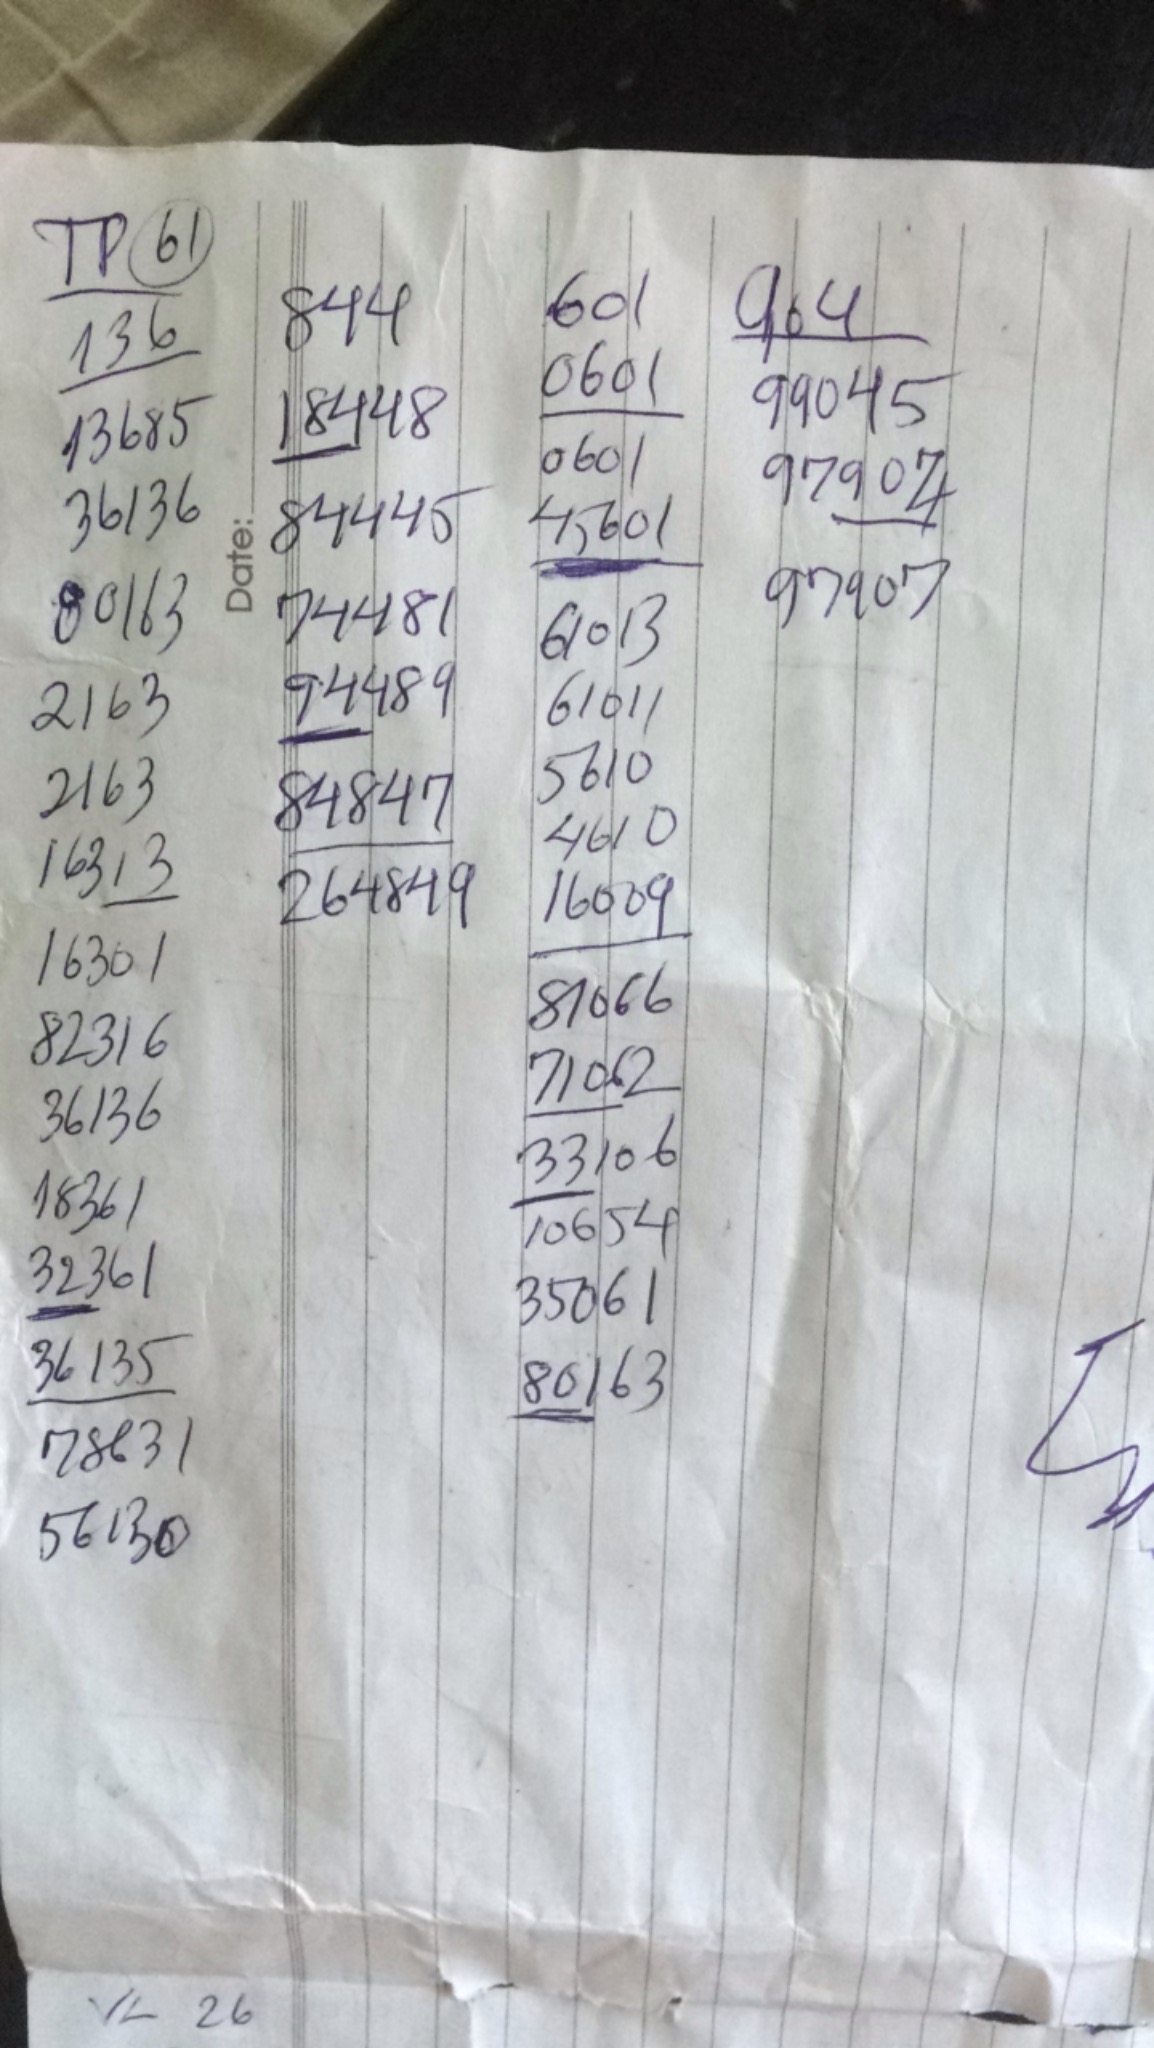 TP 61
136
13685
36136
80163
2163
2163
16313
16301
82316
36136
18361
32361
36135
78631
56130
Date:
844
18448
84445
74481
94489
84847
264849
601
0601
0601
45601
61013
61011
5610
4610
16009
81066
71062
33106
10654
35061
80163
904
99045
97907
97907
26